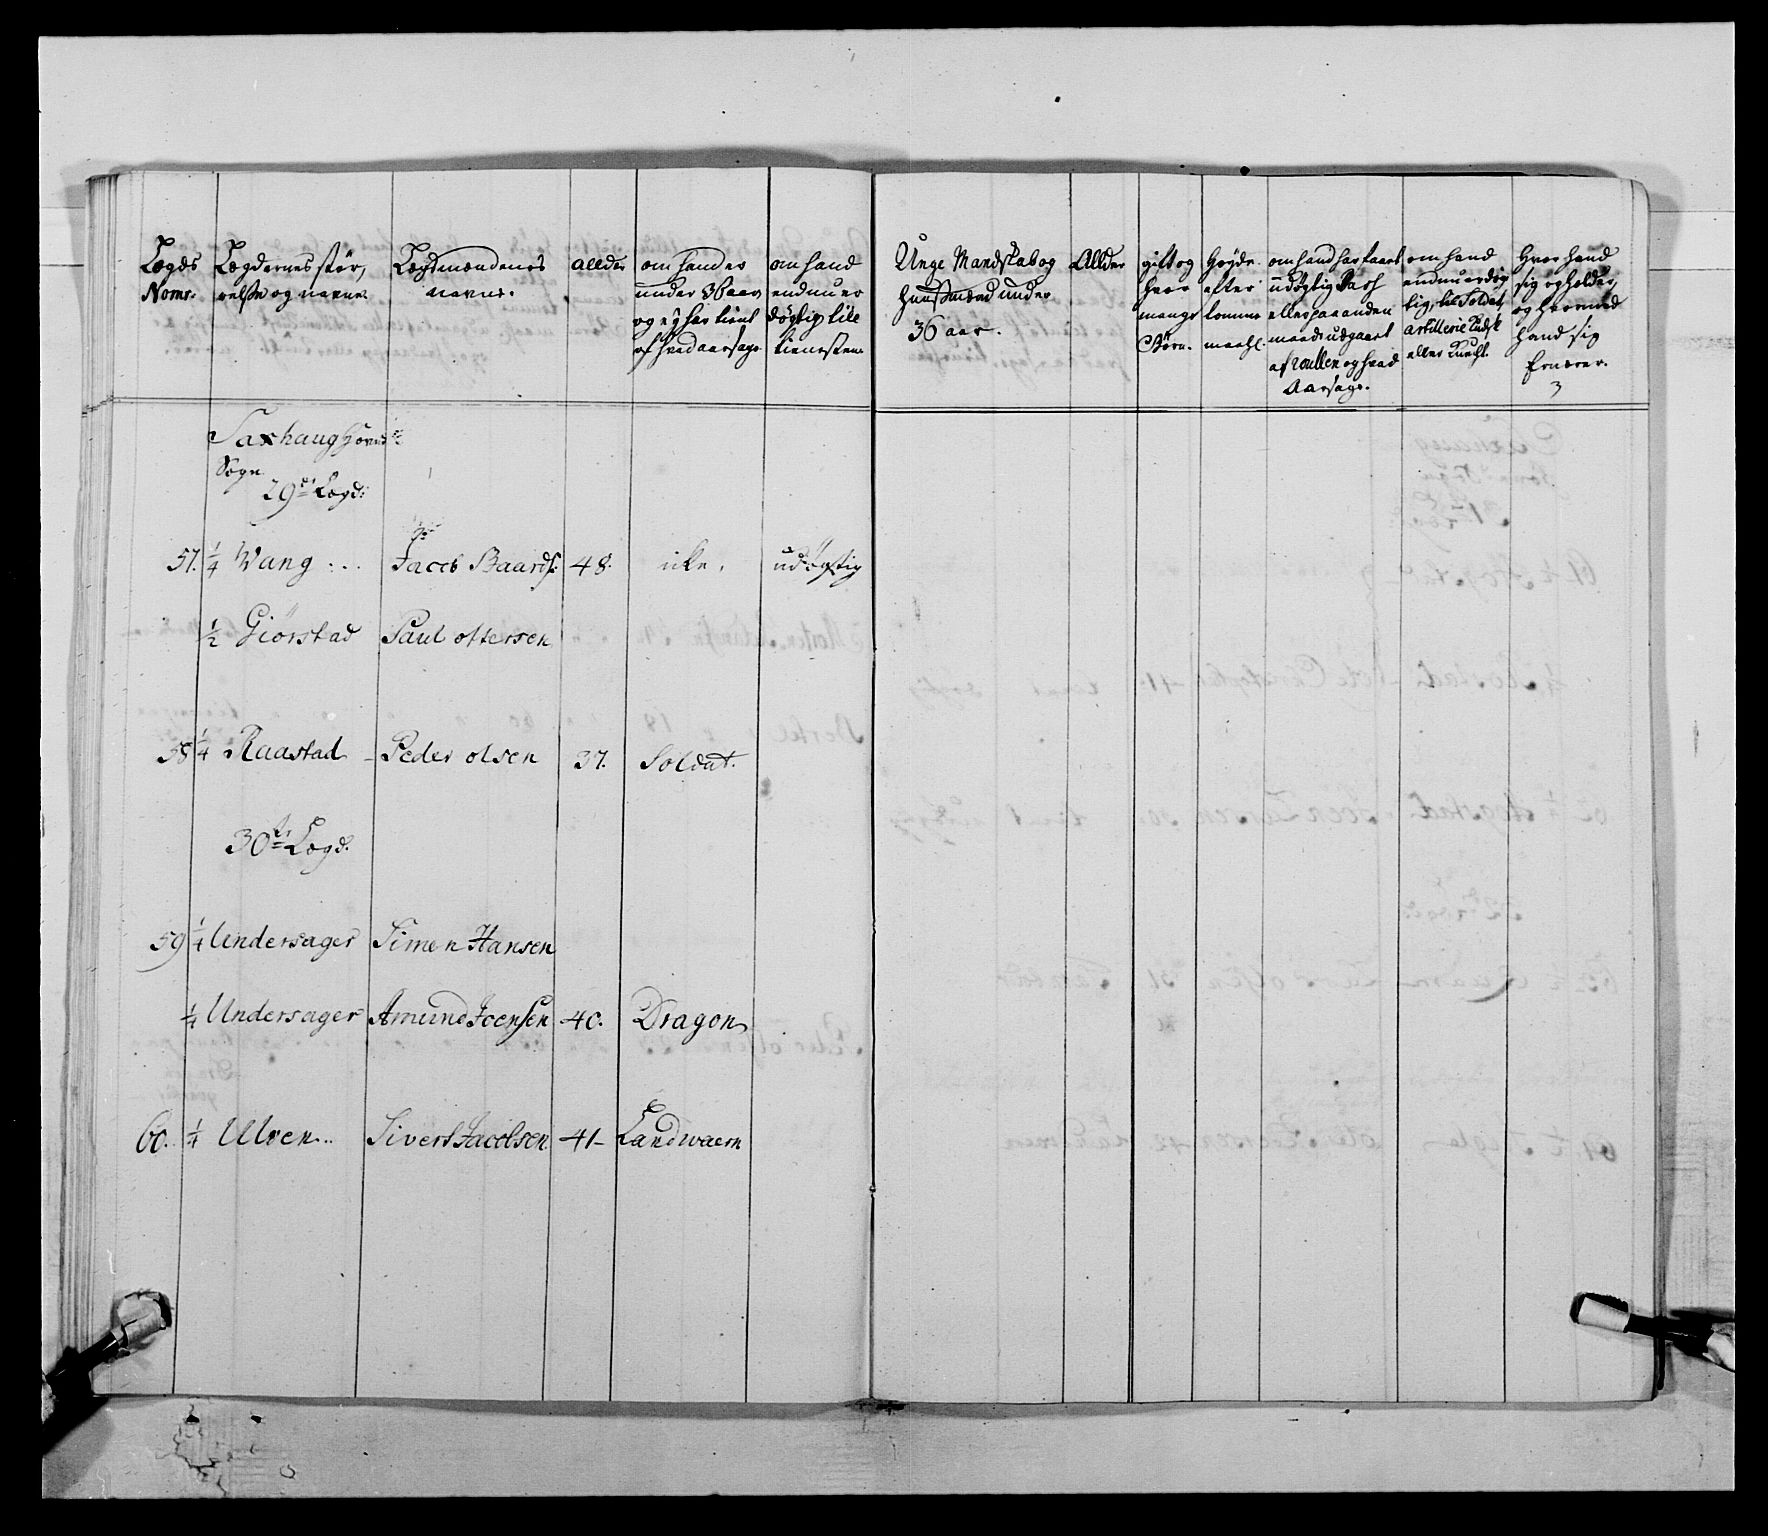 Lægds
Nomr.
Lægdernes stør,
relse og navne
Lægdmændenes
navne.
allder
om hand er
under 36 aar
og ey har tient
af hvad aarsage
om hand
endnu er
døgtig till
tienesten
Unge Mandskab og
Huusmænd under
36 aar.
Allder
gift og
hvor
mange
Børn.
Høyde
efter
tomme
maahl.
om hand har faaet
udøgtig Pass
eller paa anden
maade udgaaet
af Roullen og hvad
Aarsage.
om hand
endnu er døg
tig, til Soldat,
Artillerie Kudsk
eller Knecht.
Hvor hand
sig opholder,
og hvormed
hand sig
Ernærer.
Saxhaug Hoved
Sogn
29de Lægd:
57. 1/4 Wang ... Jacob Baards: 48. icke. udøgtig
1/2 Giørstad Paul ottersen
58 1/4 Raastad - Peder olsen 37. Soldat.
30te Lægd.
59 1/4 Undersager Simen Hansen
1/4 Undersager Amund Joensen 40. Dragon
60. 1/4 Ulven .. Sivert Jacobsen 41- Landwaern